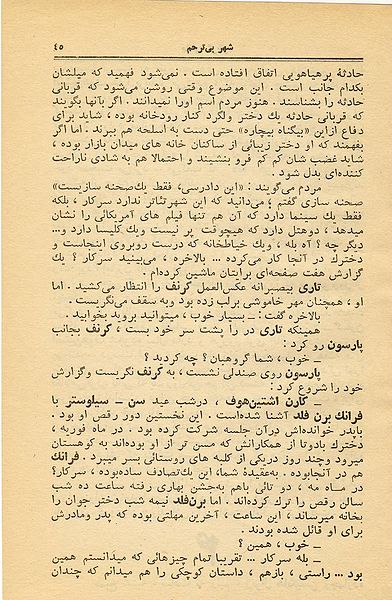 شهر بی‌ترحم ۴۵
حادثهٔ پرهیاهویی اتفاق افتاده است . نمی‌شود فهمید که میلشان
بکدام جانب است . این موضوع وقتی روشن می‌شود که قربانی
حادثه را بشناسند . هنوز مردم اسم اورا نمیدانند . اگر بآنها بگویند
که قربانی حادثه یك دختر ولگرد کنار رودخانه بوده ، شاید برای
دفاع ازاین «بیگناه بیچاره» حتی دست به اسلحه هم ببرند . اما اگر
بفهمند که او دختر زیبائی از ساکنان خانه های میدان بازار بوده ،
شاید غضب شان کم کم فرو بنشیند و احتمالا هم به شادی ناراحت
کننده‌ای بدل شود .
مردم می‌گویند : «این دادرسی، فقط یك‌صحنه سازیست»
صحنه سازی گفتم ؛ می‌دانید که این شهرتئاتر ندارد سرکار ، بلکه
فقط یك سینما دارد که آن هم تنها فیلم های آمریکائی را نشان
میدهد ، دوهتل دارد که هیچوقت پر نیست ویك کلیسا دارد و...
دیگر چه ؟ آه بله ، ویك خیاطخانه که درست روبروی اینجاست و
دخترك در آنجا کار می‌کرده ... بالاخره ، می‌بینید سرکار ؟ یك
گزارش هفت صفحه‌ای برایتان ماشین کرده‌ام .
تاری بیصبرانه عکس‌العمل گرنف را انتظار می‌کشید . اما
او ، همچنان مهر خاموشی برلب زده بود وبه سقف می‌نگریست .
بالاخره گفت : ــ بسیار خوب ، میتوانید بروید بخوابید .
همینکه تاری در را پشت سر خود بست ، گرنف بجانب
پارسون رو کرد :
ــ خوب ، شما گروهبان ؟ چه کردید ؟
پارسون روی صندلی نشست ، به گرنف نگریست وگزارش
خود را شروع کرد :
ــ کارن اشتین‌هوف ، درشب عید سن ــ سیلوستر با
فرانك برن فلد آشنا شده‌است . این نخستین دور رقص او بود .
باپدر خوانده‌اش درآن جلسه شرکت کرده بود . در ماه فوریه ،
دخترك بادوتا از همکارانش که مسن تر از او بوده‌اند به کوهستان
میرود وچند روز دریکی از کلبه های روستائی بسر میبرد . فرانك
هم در آنجابوده . به‌عقیدهٔ شما، این یك‌تصادف ساده‌بوده ، سرکار؟
در مـاه مه ، دو تائی باهم به‌جشن بهاری رفته ساعت ده شب
سالن رقص را ترك کرده‌اند . اما برن‌فلد نیمه شب دختر جوان را
بخانه میرساند ، این ساعت ، آخرین مهلتی بوده که پدر ومادرش
برای او قائل شده بودند .
ــ خوب ، همین ؟
ــ بله سرکار ... تقریبا تمام چیزهائی که میدانستم همین
بود ... راستی ، بازهم ، داستان کوچکی را هم میدانم که چندان